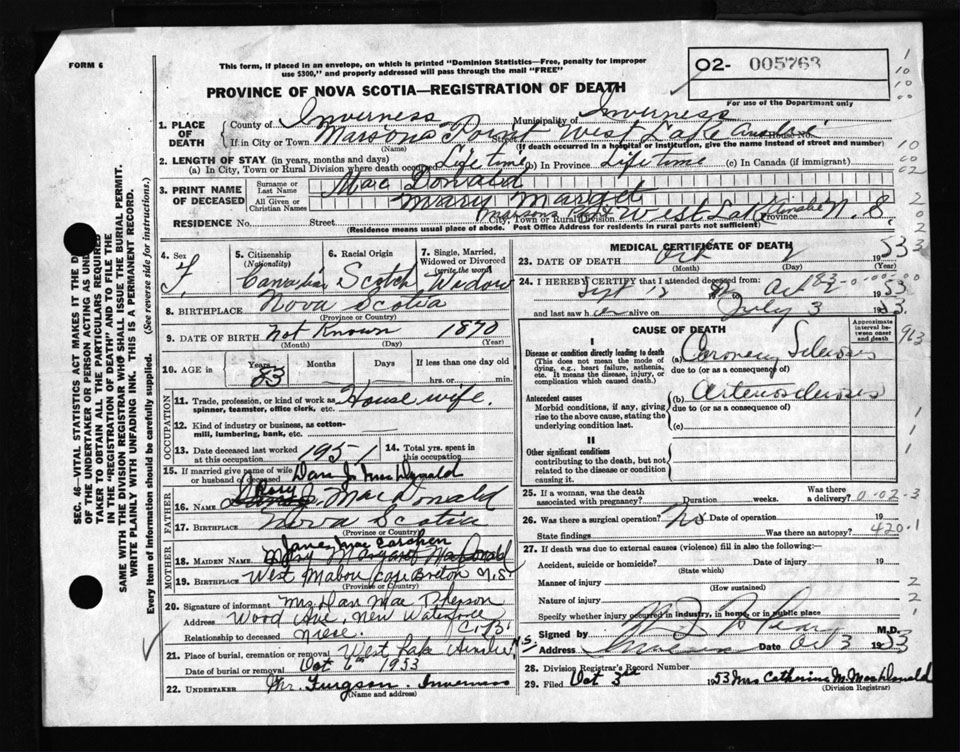 FORM 6
This form, if placed in an envelope, on which is printed "Dominion Statistics—Free, penalty for improper
use $300," and properly addressed will pass through the mail "FREE"
O2- 005763
For use of the Department only
PROVINCE OF NOVA SCOTIA—REGISTRATION OF DEATH
SEC. 46—VITAL STATISTICS ACT MAKES IT THE D
OF THE UNDERTAKER OR PERSON ACTING AS UND
TAKER TO OBTAIN ALL THE PARTICULARS REQUIRED
IN THE "REGISTRATION OF DEATH" AND TO FILE THE
SAME WITH THE DIVISION REGISTRAR WHO SHALL ISSUE THE BURIAL PERMIT.
WRITE PLAINLY WITH UNFADING INK. THIS IS A PERMANENT RECORD.
Every item of information should be carefully supplied. (See reverse side for instructions.)
1. PLACE OF DEATH
County of Inverness Municipality of Inverness
If in City or Town Marsons Point West Lake Street House No.
(Name) (If death occurred in a hospital or institution, give the name instead of street and number)
2. LENGTH OF STAY (in years, months and days)
(a) In City, Town or Rural Division where death occurred Life time (b) In Province Life time (c) In Canada (if immigrant)
3. PRINT NAME OF DECEASED
Surname or Last Name Mac Donald
All Given or Christian Names Mary Margret
RESIDENCE No. Street Marsons West Lake City, Town or Rural Division Province N. S
(Residence means usual place of abode. Post Office Address for residents in rural parts not sufficient)
4. Sex F
5. Citizenship (Nationality) Canadian
6. Racial Origin Scotch
7. Single, Married, Widowed or Divorced (write the word) Widow
8. BIRTHPLACE Nova Scotia
(Province or Country)
9. DATE OF BIRTH Not Known 1870
(Month) (Day) (Year)
10. AGE in Years 83 Months Days If less than one day old
hrs. or min.
OCCUPATION
11. Trade, profession, or kind of work as spinner, teamster, office clerk, etc. House wife.
12. Kind of industry or business, as cotton-mill, lumbering, bank, etc.
13. Date deceased last worked at this occupation 1951
14. Total yrs. spent in this occupation
15. If married give name of wife or husband of deceased Dan J. MacDonald
FATHER
16. Name Rory MacDonald
17. BIRTHPLACE Nova Scotia
(Province or Country)
MOTHER
18. MAIDEN NAME Janey Mac Eachen
Mary Margaret MacDonald
19. BIRTHPLACE West Mabou Cape Breton N.S.
(Province or Country)
20. Signature of informant Mrs Dan Mac Pherson
Address Wood Ave, New Waterford
Relationship to deceased Niece. C.B.
21. Place of burial, cremation or removal West Lake Ainslie, N.S.
Date of burial or removal Oct 6th 1953
22. UNDERTAKER Mr. Furgson. Inverness
(Name and address)
MEDICAL CERTIFICATE OF DEATH
23. DATE OF DEATH Oct 2 1953
(Month) (Day) (Year)
24. I HEREBY CERTIFY that I attended deceased from:
Sept 12 1953
and last saw h er alive on July 3 1953.
CAUSE OF DEATH
Approximate interval between onset and death
I
Disease or condition directly leading to death
(This does not mean the mode of dying, e.g., heart failure, asthenia, etc. It means the disease, injury, or complication which caused death.)
(a) Coronary Sclerosis
due to (or as a consequence of)
Antecedent causes
Morbid conditions, if any, giving rise to the above cause, stating the underlying condition last.
(b) Arteriosclerosis
due to (or as a consequence of)
(c)
II
Other significant conditions
contributing to the death, but not related to the disease or condition causing it.
25. If a woman, was the death associated with pregnancy? Duration weeks. Was there a delivery? 0-02-3
26. Was there a surgical operation? No Date of operation 19
State findings Was there an autopsy? 420.1
27. If death was due to external causes (violence) fill in also the following:—
Accident, suicide or homicide? Date of injury 19
(State which)
Manner of injury
(How sustained)
Nature of injury
Specify whether injury occurred in industry, in home, or in public place
Signed by M.D.
Address Date Oct 3 1953
28. Division Registrar's Record Number
29. Filed Oct 3rd 1953 Mrs Catherine M. MacDonald
(Division Registrar)